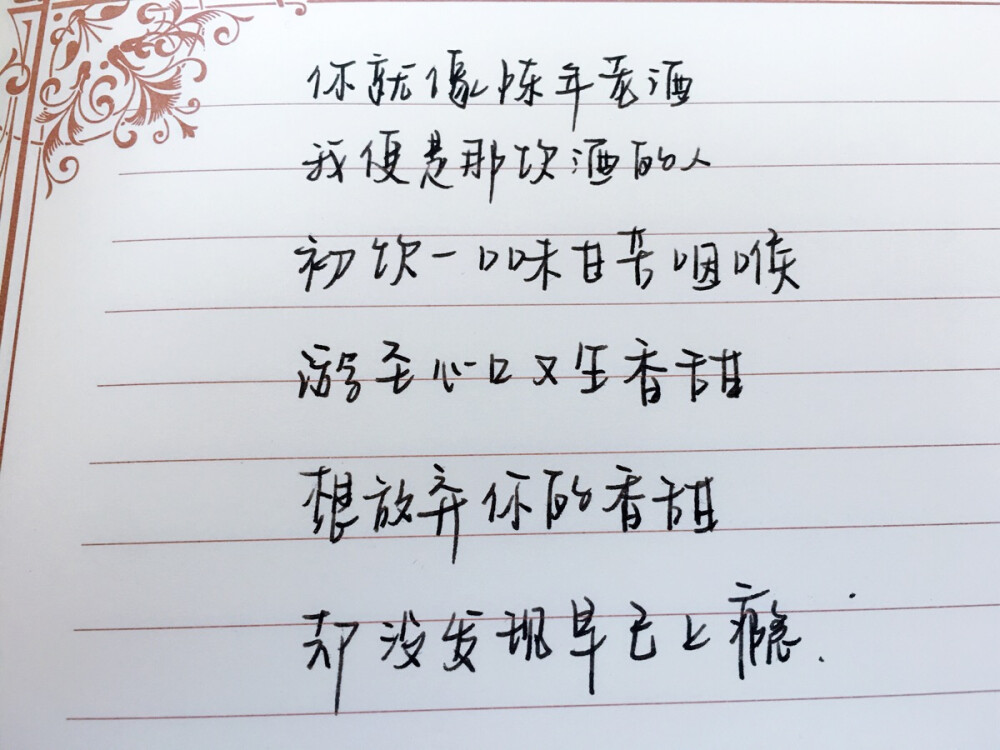 你就像陈年老酒
我便是那饮酒的人
初饮一口味甘苦咽喉
游至心口又生香甜
想放弃你的香甜
却没发现早已上瘾.